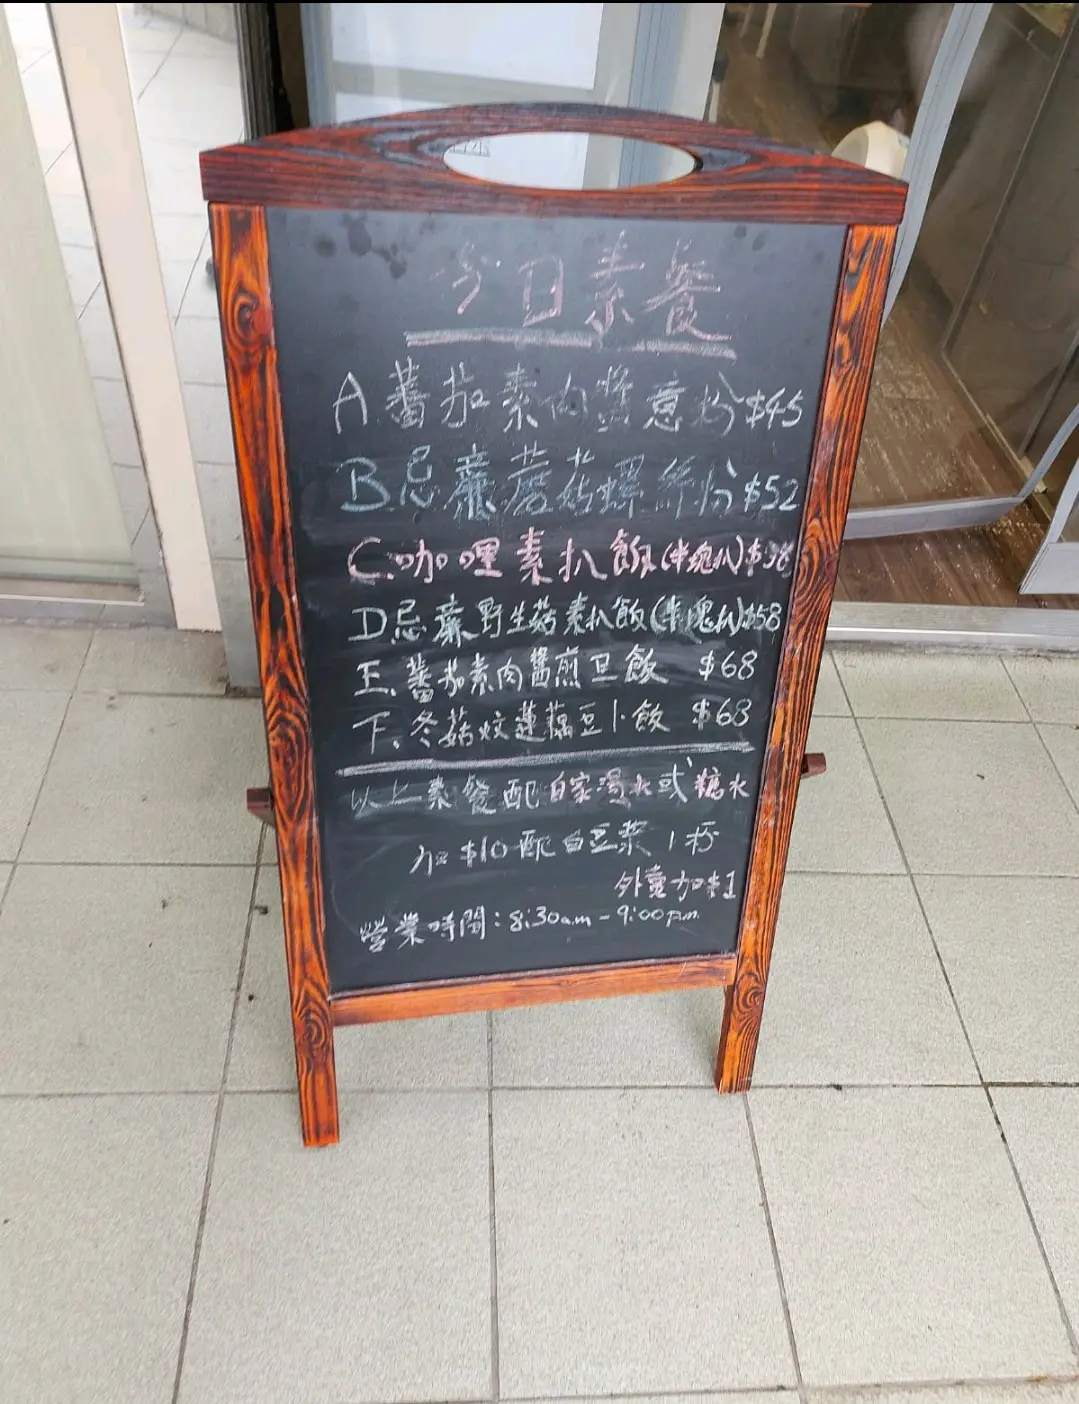 今日素餐
A蕃茄素肉醬意粉$45
B.忌廉蘑菇螺絲粉$52
C.咖哩素扒飯(半塊扒)
D忌廉野生菇素扒飯(半塊扒)$58
E.蕃茄素肉醬煎旦飯 $68
下.冬菇炆蓮藕豆卜飯 $68
以上素餐配自家湯水或糖水
加$10配白豆漿1杯
外賣加$1
營業時間:8:30a.m-9:00p.m.